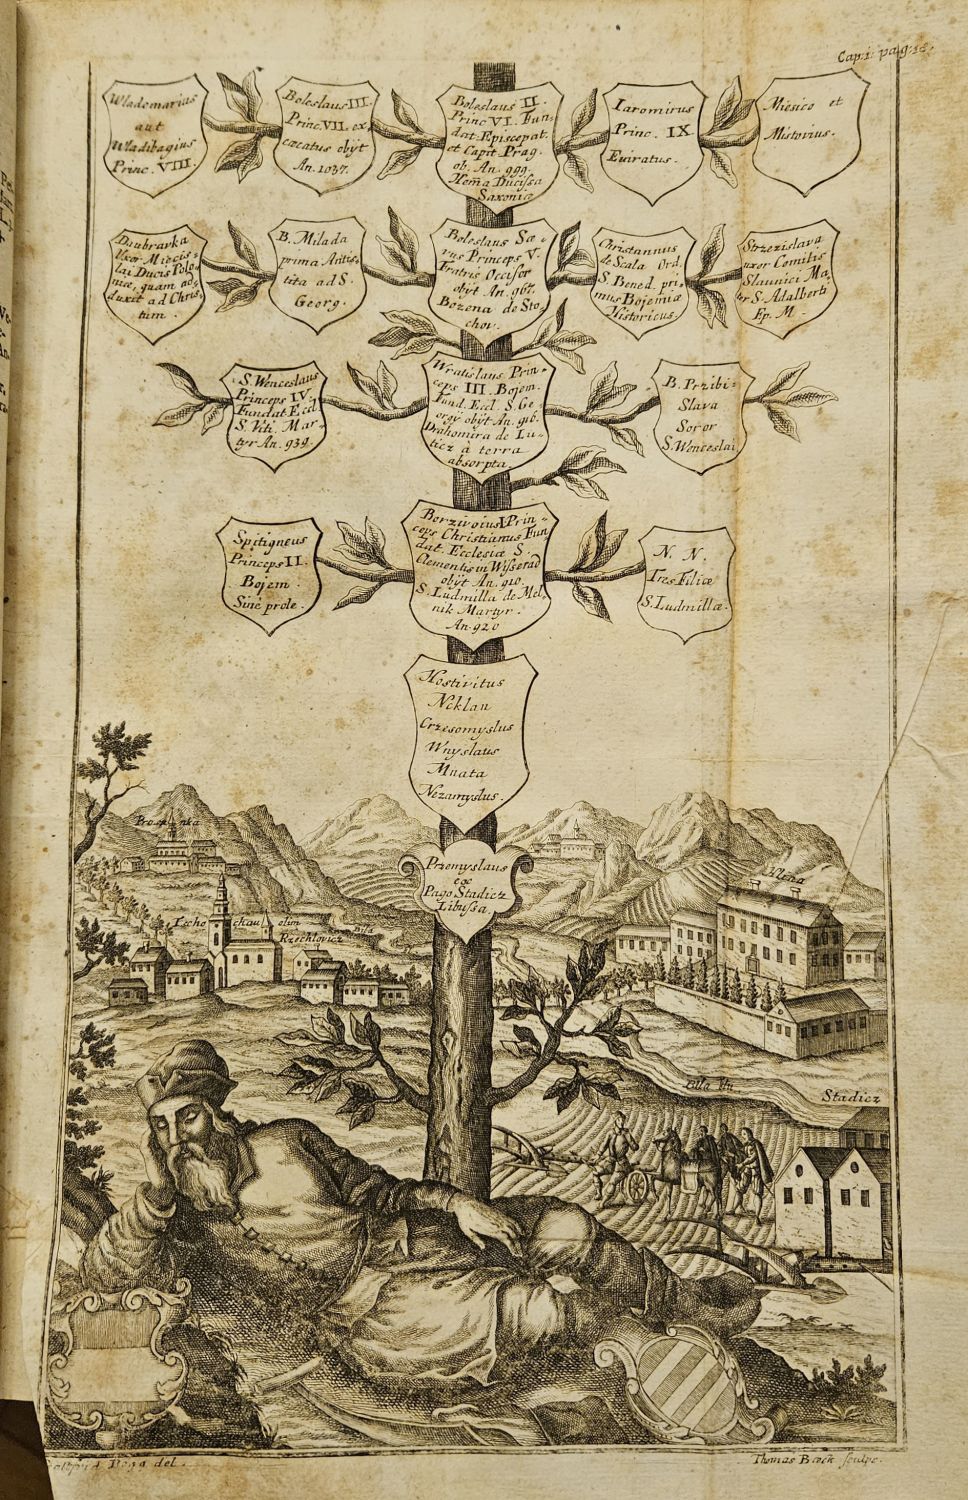 Cap: 1. pag: 18.
Wlademarius
aut
Wladibagius
Princ. VIII.
Boleslaus III.
Princ. VII. ex,
cæcatus obÿt
An. 1037.
Boleslaus II.
Princ VI. Fun-
dat. Episcepat.
et Capit Prag.
ob. An. 999.
Hem̄a Ducissa
Saxoniæ
Iaromirus
Princ. IX.
Eviratus.
Miesico et
Mistovius.
Doubravka
Uxor Miecis-
lai Ducis Polo-
niæ, quam ad-
duxit ad Chris,
tum.
B. Milada
prima Actis,
tita ad S.
Georg.
Boleslaus Sæ-
vus Princeps V.
Fratris Occisor
obÿt An. 967.
Bozena de Sto-
chov.
Christannus
de Scala Ord.
S. Bened. pri-
mus Bojemiæ
Historicus.
Strzezislava
uxor Comitis
Slavnici Ma,
tr S. Adalberti
Ep. M.
S. Wenceslaus
Princeps IV.
Fundat. Eccl.
S. Viti. Mar-
tyr An. 939.
Wratislaus Prin-
ceps III. Bojem.
Fund. Eccl. S. Ge
orgÿ obÿt An. 916.
Drahomira de Lu-
ticz à terra
absorpta.
B. Przibi-
Slava
Soror
S. Wenceslai
Spitigneus
Princeps II.
Bojem.
Sine prole.
Borzivoius I. Prin-
ceps Christianus Fun
dat. Ecclesiæ S.
Clementis in Wisserad
obÿt An. 910.
S. Ludmilla de Mel,
nik Martyr.
An. 920
N. N.
Tres Filiæ
S. Ludmillæ.
Hostivitus
Neklan
Crzesomyslus
Wnyslaus
Mnata
Nezamyslus.
Przemyslaus
ex
Pago Stadicz
Libussa.
Rzechlovicz
Stadicz
del.
Thomas Bœck sculps.